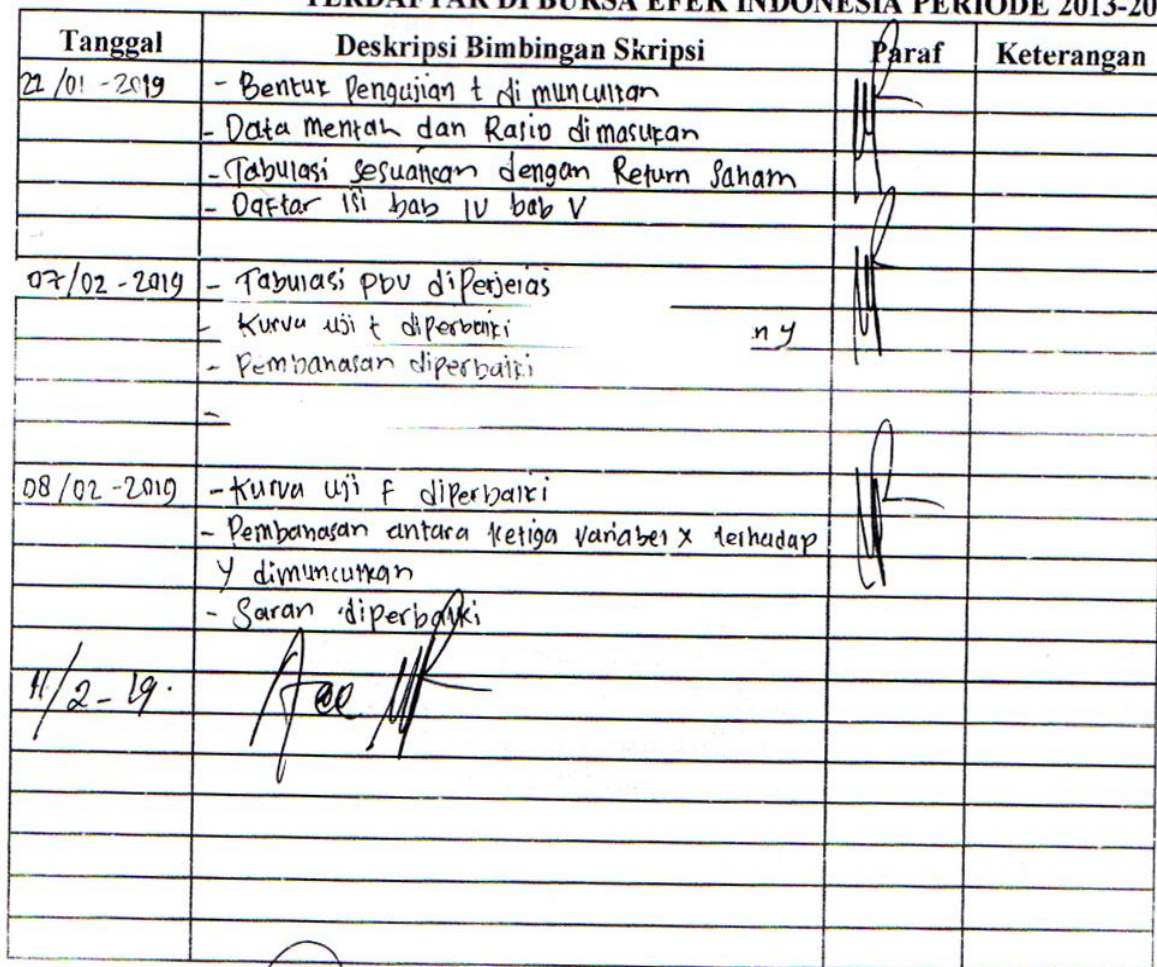 TERDAFTAR DI BURSA EFEK INDONESIA PERIODE 2013-20
Tanggal Deskripsi Bimbingan Skripsi Paraf Keterangan
22/01-2019 - Bentuk Pengujian t di munculkan
- Data Mentah dan Rasio di masukan
- Tabulasi Sesuaikan dengan Return Saham
- Daftar isi bab IV bab V
07/02-2019 - Tabulasi pbv diperjelas
- Kurva uji t diperbaiki ny
- Pembahasan diperbaiki
-
08/02-2019 - Kurva uji F diperbaiki
- Pembahasan antara ketiga variabel X terhadap
Y dimunculkan
- Saran diperbaiki
11/2-19. Acc